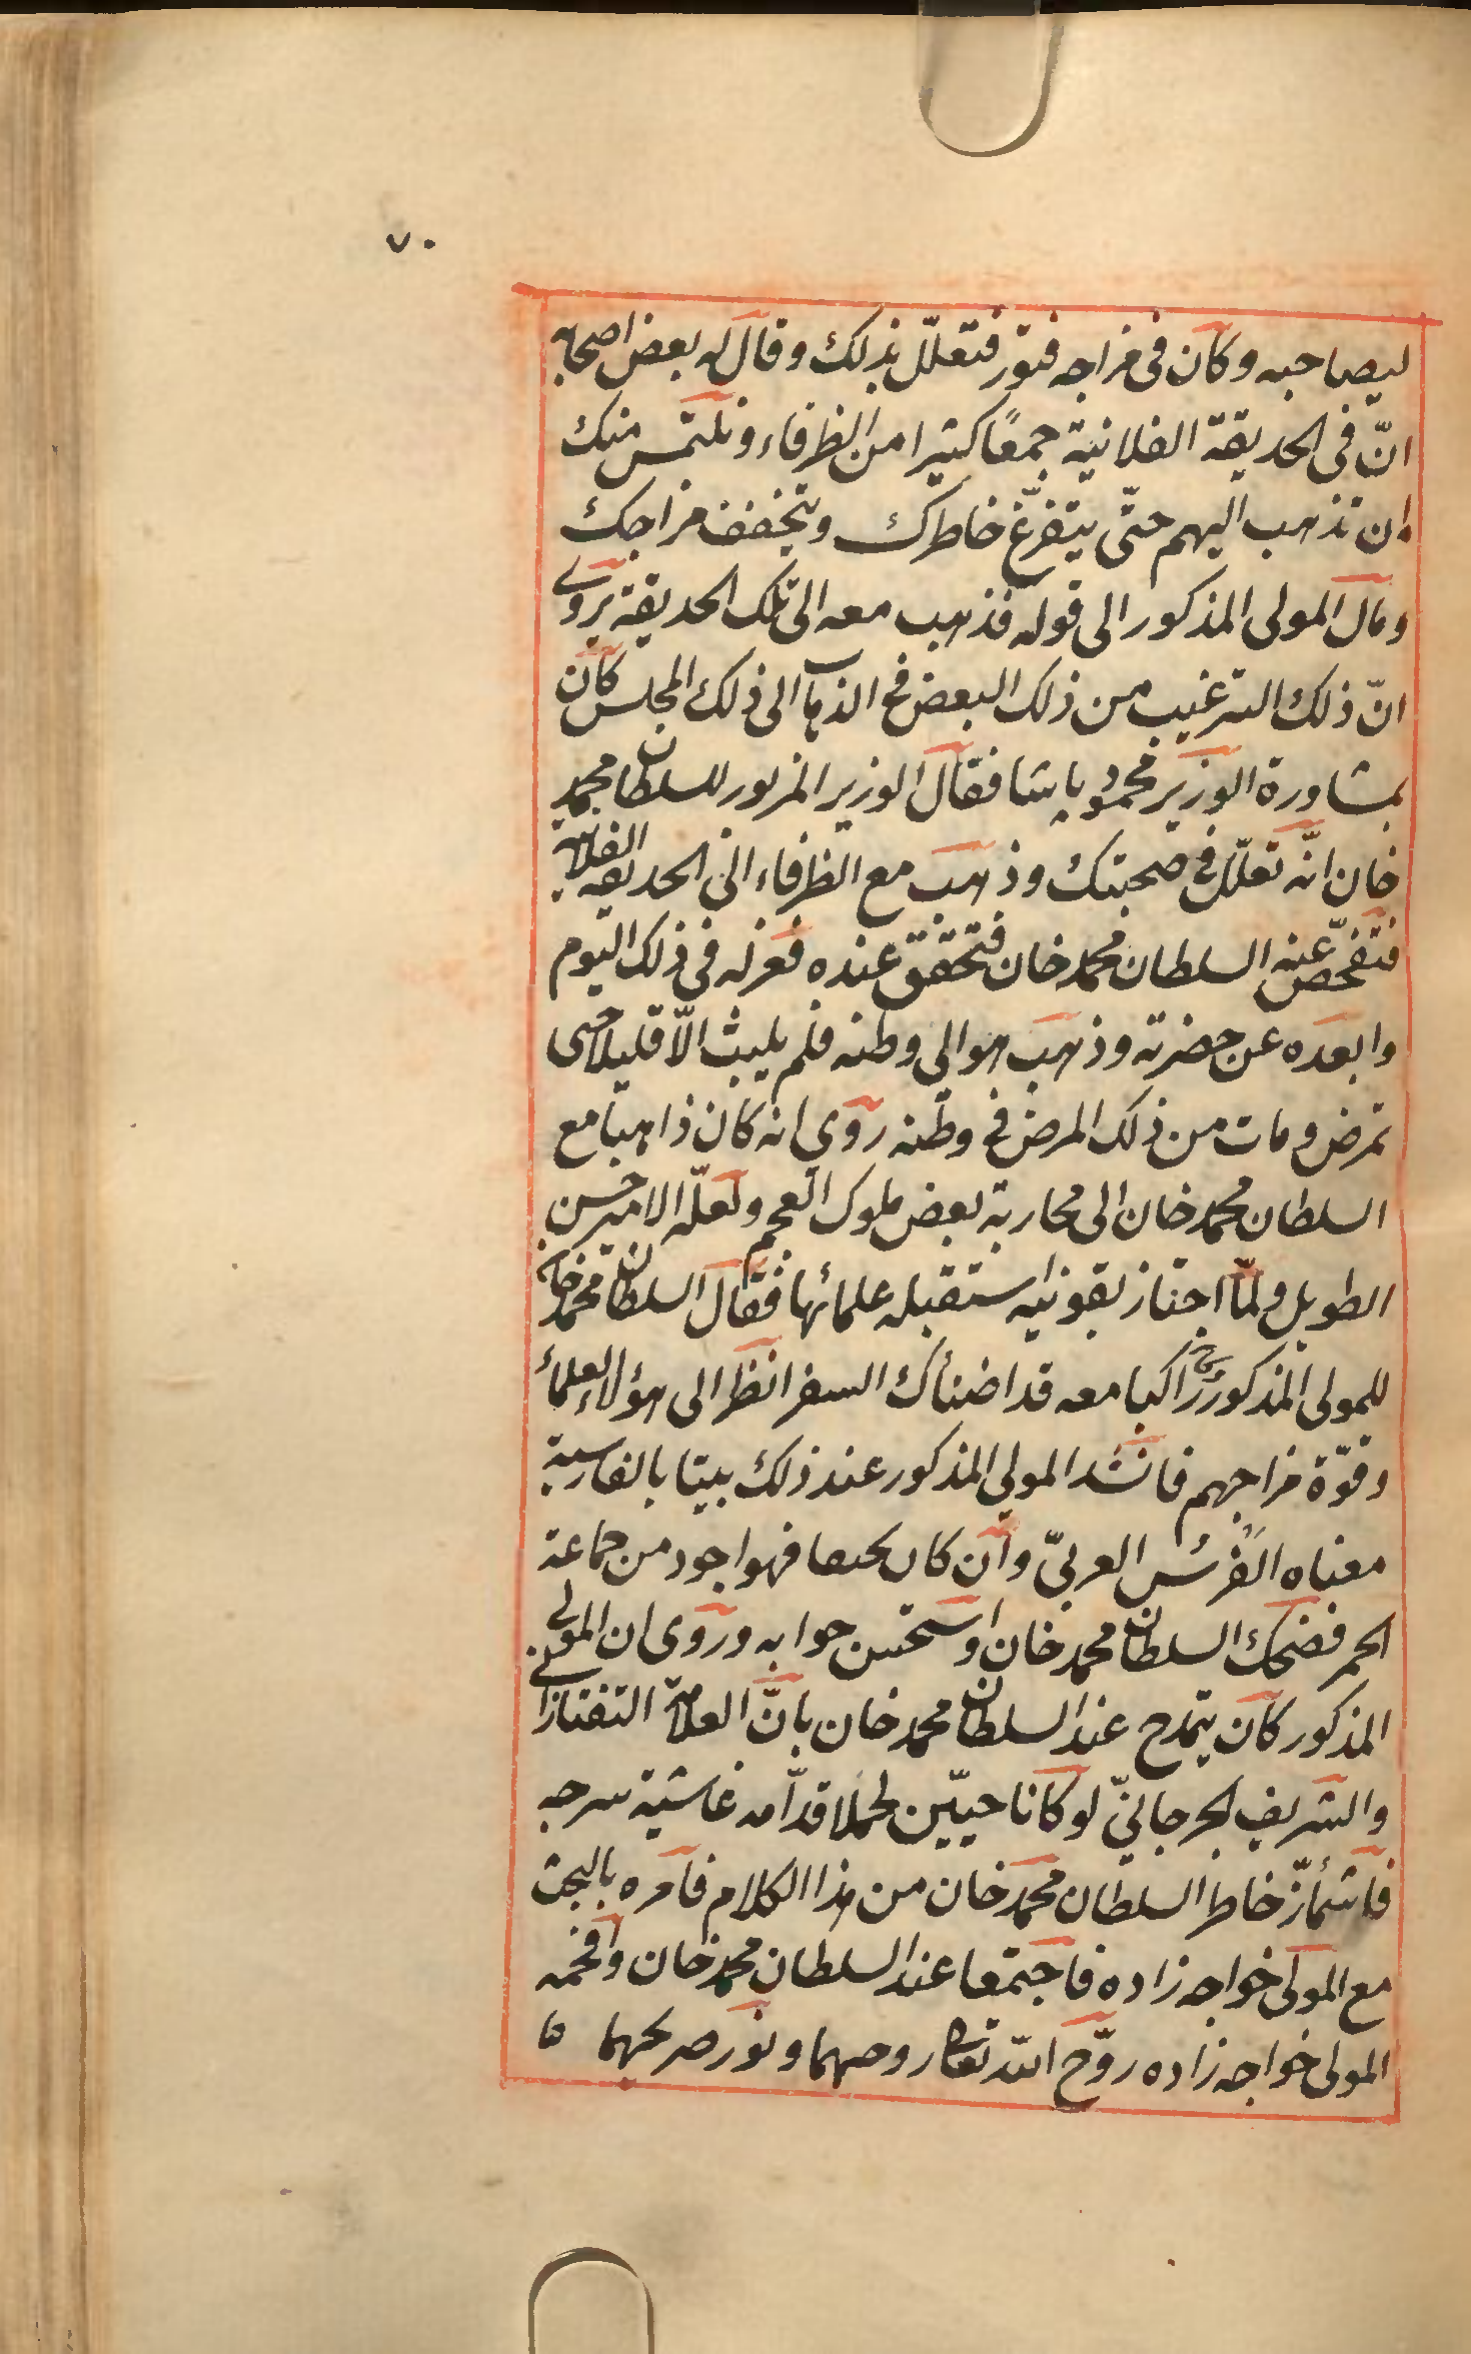 ٧٠
ليصاحبه وكان فى مزاجه فتور فتعلّل بذلك وقال له بعض اصحابه
انّ فى الحديقة الفلانية جمعًا كثيرا من الظرفاء ونلتمس منك
ان تذهب اليهم حتّى يتفرّغ خاطرك ويتخفف مزاجك
ومال المولى المذكور الى قوله فذهب معه الى تلك الحديقة يروى
انّ ذلك الترغيب من ذلك البعض فى الذهاب الى ذلك المجلس كان
بمشاورة الوزير محمود پاشا فقال الوزير المزبور للسلطان محمد
خان انّه تعلّل فى صحبتك وذهب مع الظرفاء الى الحديقة الفلانية
فتفحّص عنه السلطان محمد خان فتحقق عنده فعزله فى ذلك اليوم
وابعده عن حضرته وذهب هو الى وطنه فلم يلبث الّا قليلا حتى
تمرض ومات من ذلك المرض فى وطنه روى انه كان ذاهبا مع
السلطان محمد خان الى محاربة بعض ملوك العجم ولعلّه الامير حسن
الطويل ولمّا اجتاز بقونيه استقبله علمائها فقال السلطان محمد خان
للمولى المذكور راكبا معه قد اضناك السفر انظر الى هؤلاء العلماء
وقوّة مزاجهم فانشد المولى المذكور عند ذلك بيتا بالفارسية
معناه الفرس العربىّ وان كان نحيفا فهو اجود من جماعة
الحمر فضحك السلطان محمد خان واستحسن جوابه وروى ان المولى
المذكور كان يتمدح عند السلطان محمد خان بانّ العلامة التفتازانى
والشريف الجرجانىّ لو كانا حيّين لحملا قدّامه غاشية سرجه
فاشمأزّ خاطر السلطان محمد خان من هذا الكلام فامره بالبحث
مع المولى خواجه زاده فاجتمعا عند السلطان محمد خان وافحمه
المولى خواجه زاده روّح الله تعالى روحهما ونور ضريحهما